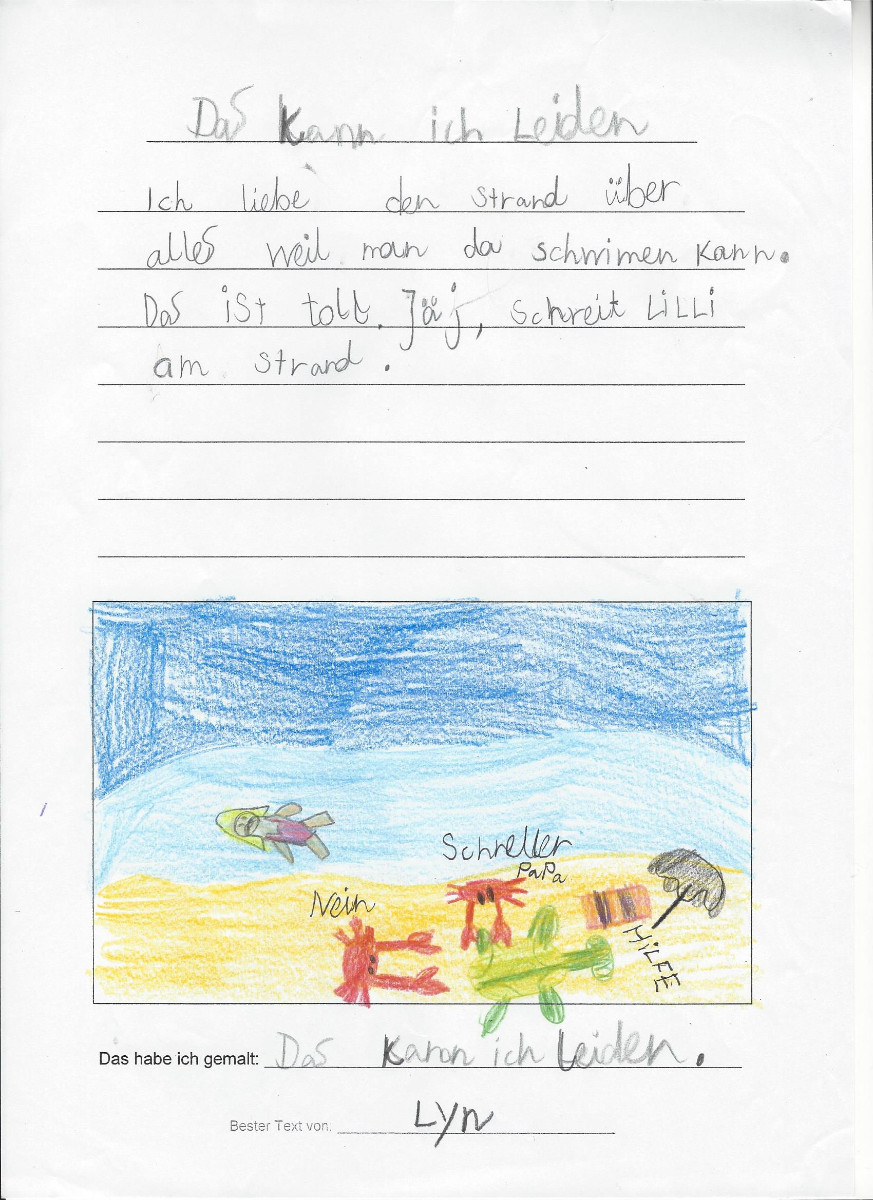 Das kann ich Leiden
Ich liebe den Strand über
alles weil man da schwimen kann.
Das ist toll. Jäj, schreit LiLLi
am Strand.
Schneller
PaPa
Nein
HiLFE
Das habe ich gemalt: Das kann ich Leiden.
Bester Text von: Lyn